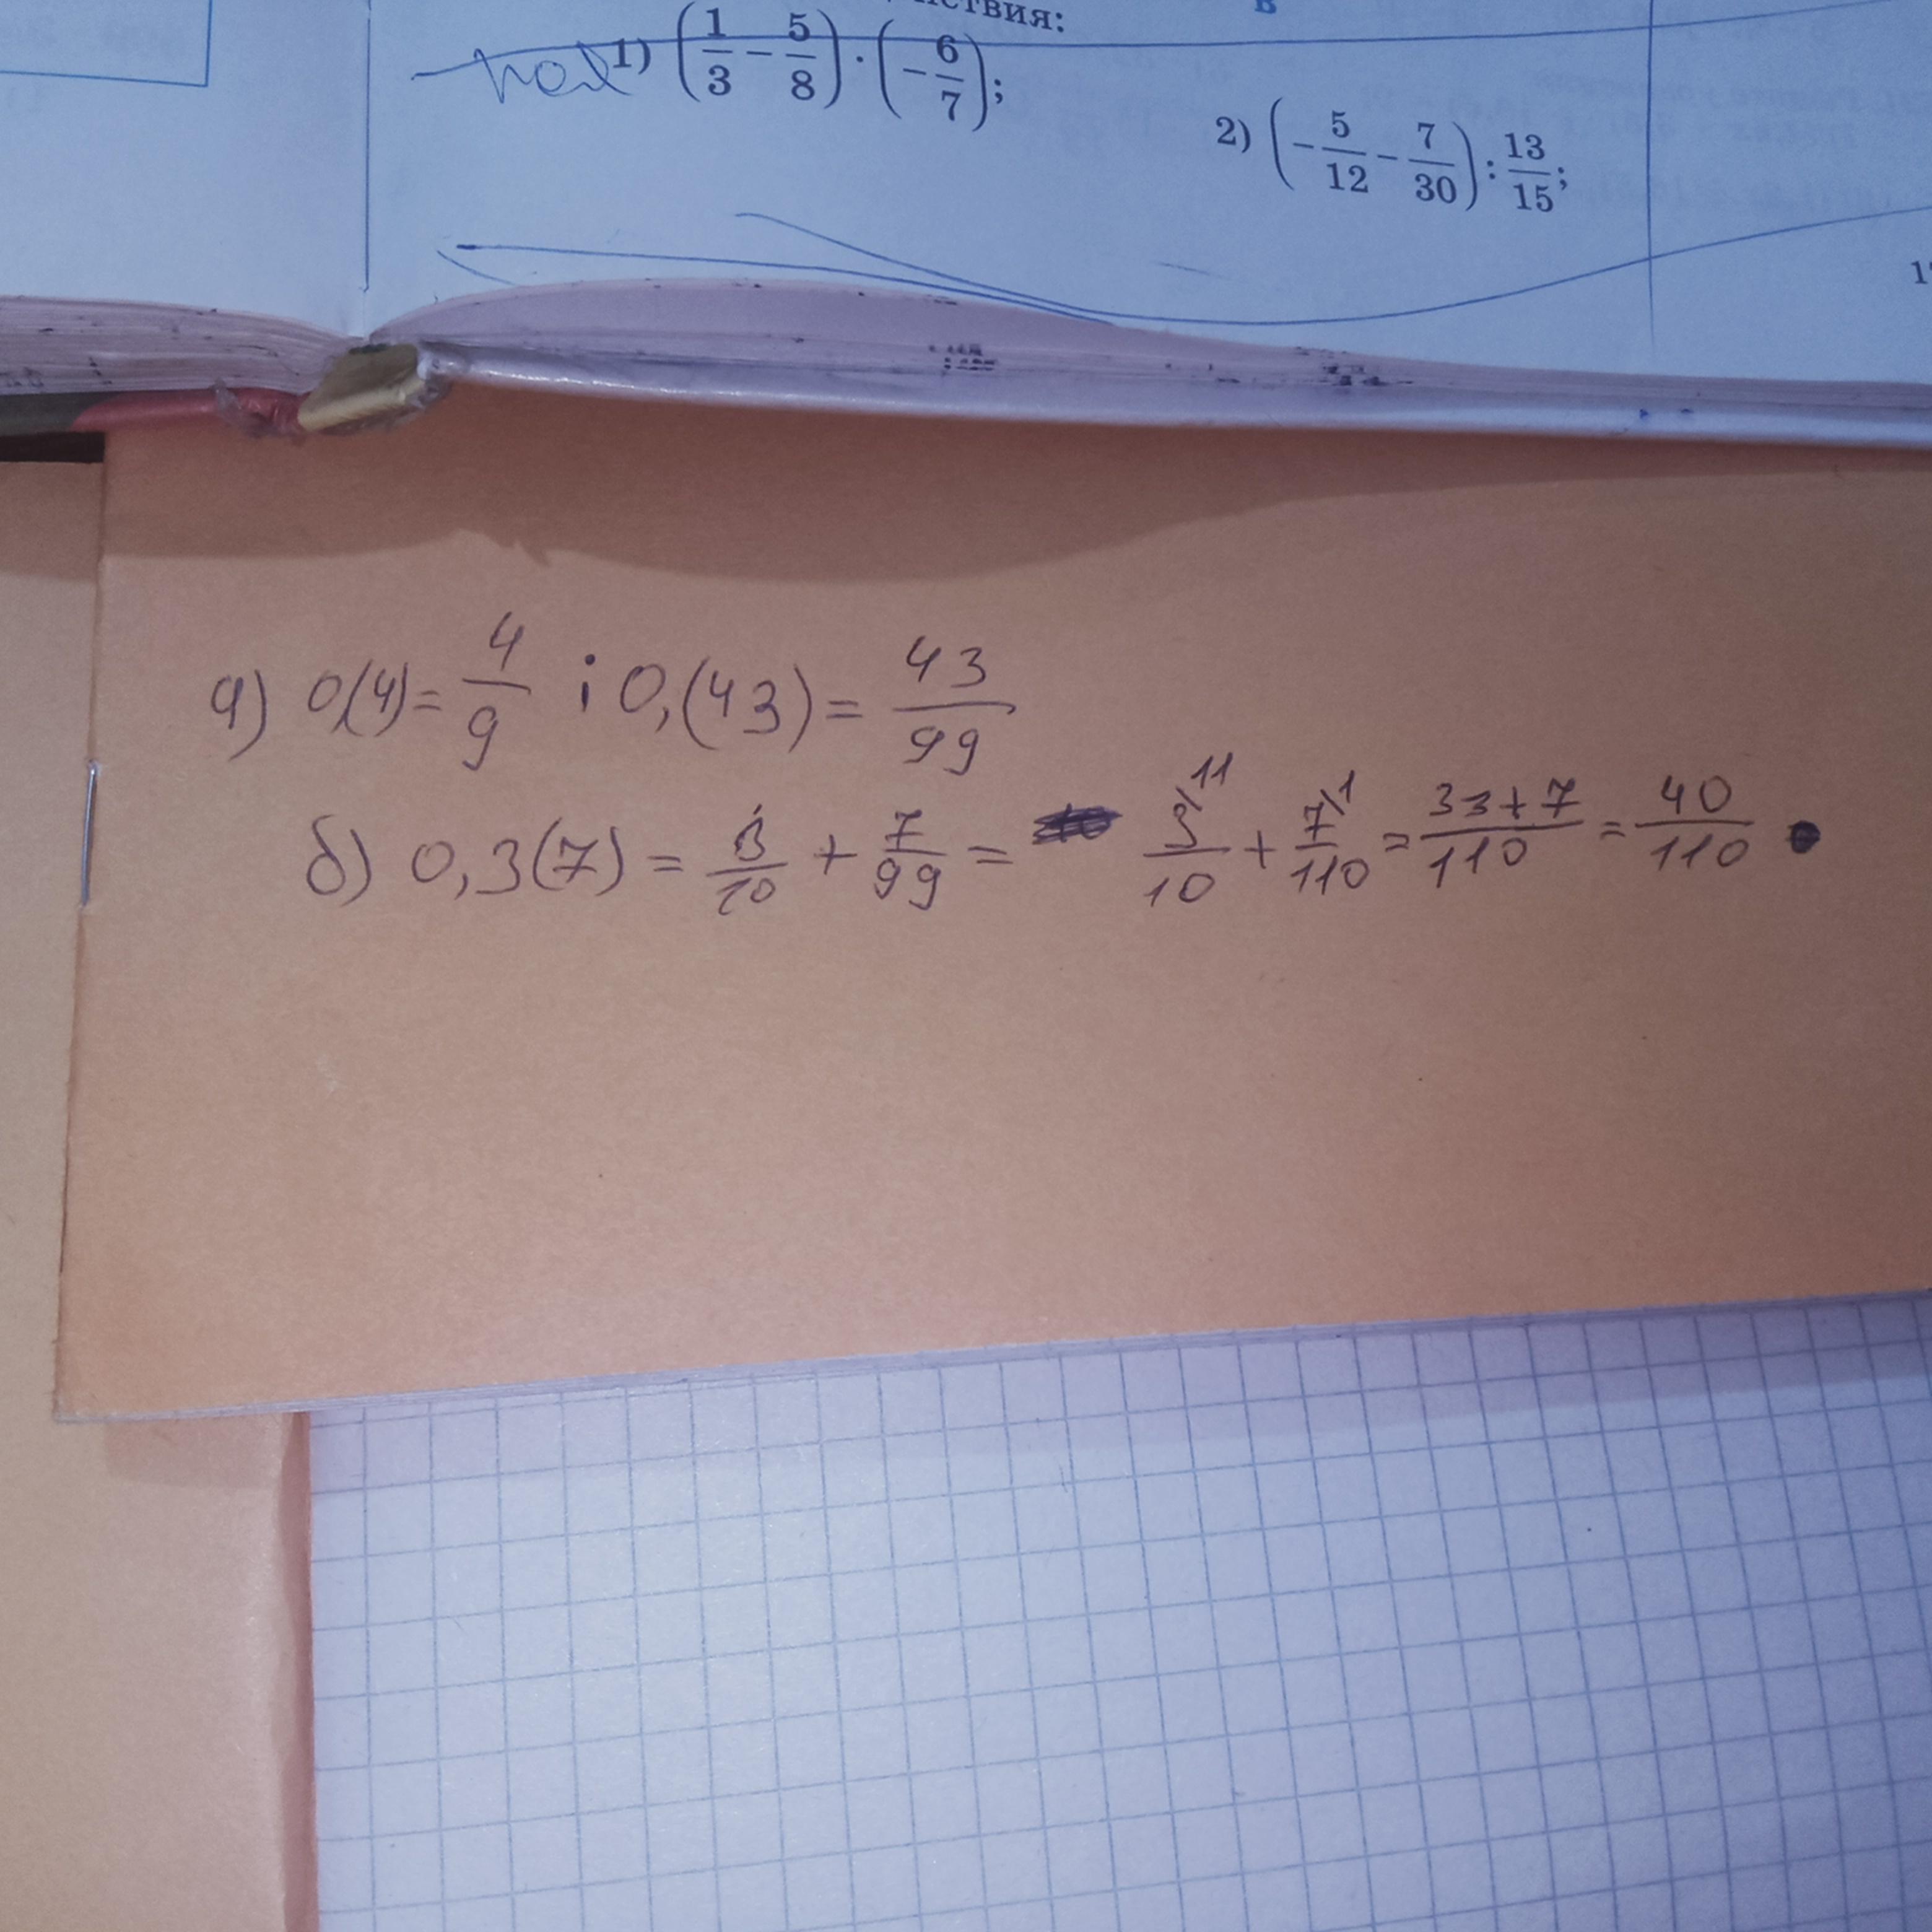 ствия:
1) (1/3 − 5/8) · (−6/7);
2) (−5/12 − 7/30) : 13/15;
а) 0,(4) = 4/9 і 0,(43) = 43/99
б) 0,3(7) = 3/10 + 7/99 = 3\11/10 + 7\1/110 = 33+7/110 = 40/110